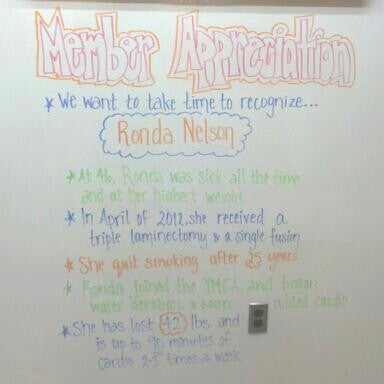 Member Appreciation
* We want to take time to recognize...
Ronda Nelson
* At 46, Ronda was sick all the time
and at her highest weight
* In April of 2012, she received a
triple laminectomy & a single fusion
* She quit smoking after 25 years
* Ronda joined the YMCA and began
water aerobics & soon added cardio
* She has lost 42 lbs. and
is up to 90 minutes of
cardio 2-3 times a week